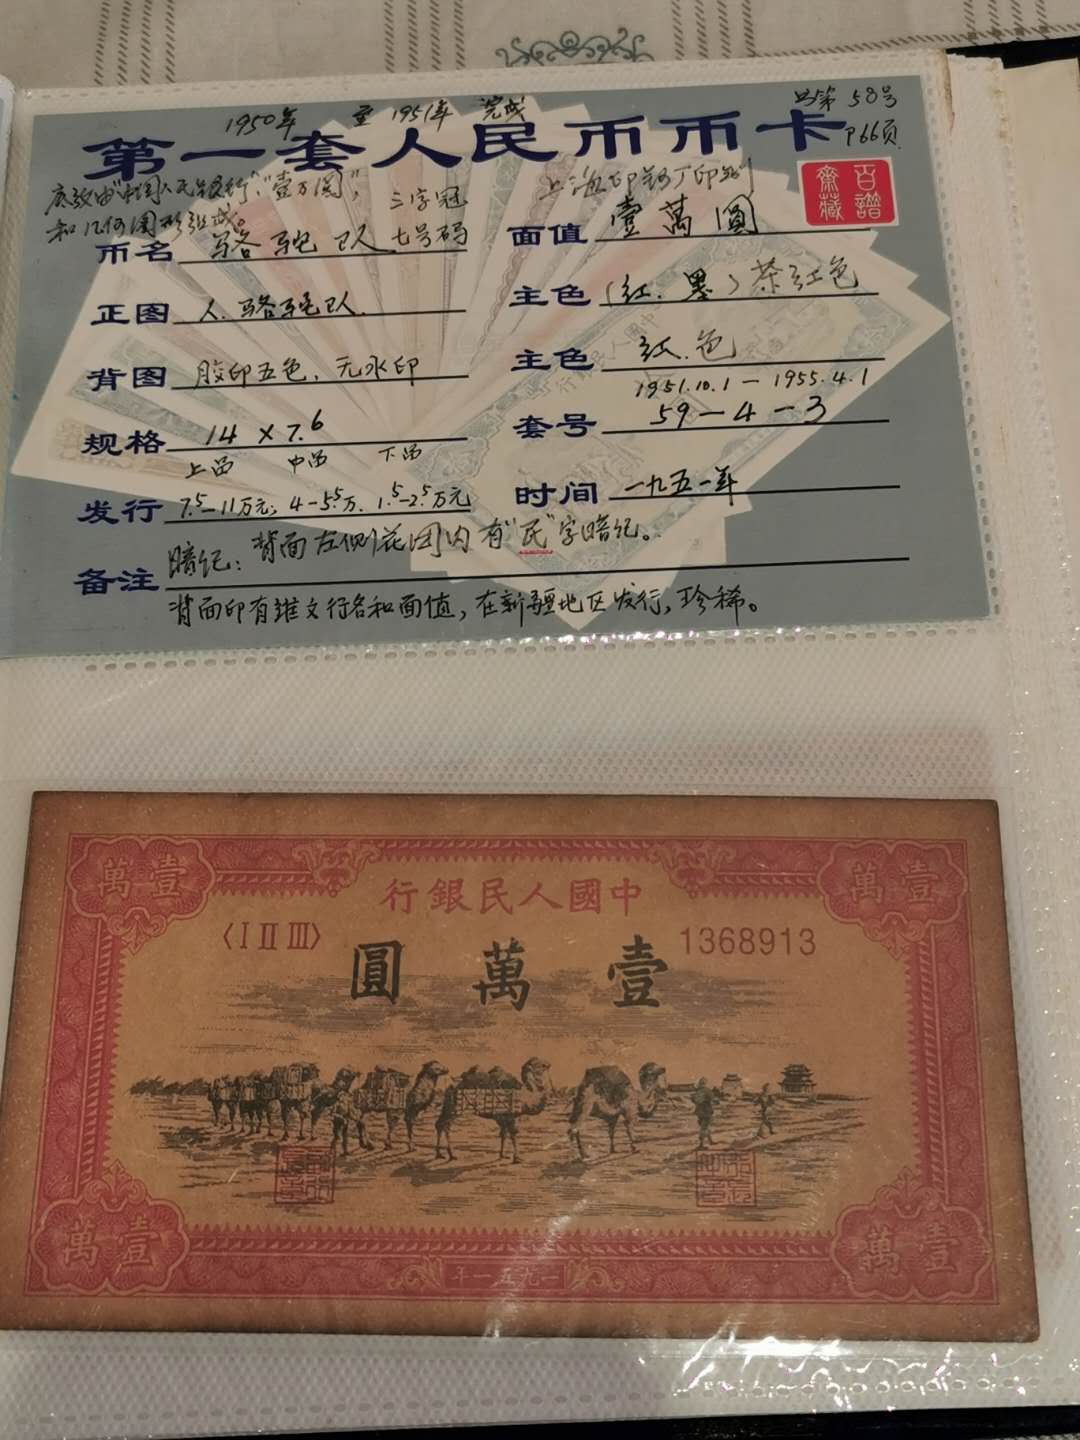 1950年 至 1951年 完成
总第 58号
第一套人民币币卡
P66页
底纹由"中国人民银行"、"壹万圆",
三字冠
上海印钞厂印制
百谱
斋藏
和几何图形组成。
七号码
币名 骆驼队
面值 壹萬圓
正图 人.骆驼队.
主色 (红.墨)茶红色
背图 胶印五色,无水印
主色 红.色
1951.10.1-1955.4.1
规格 14×7.6
套号 59-4-3
上品 中品 下品
发行 7.5-11万元; 4-5.5万. 1.5-2.5万元
时间 一九五一年
暗记: 背面左侧花团内有"民"字暗记。
备注
背面印有维文行名和面值,在新疆地区发行,珍稀。
萬壹
萬壹
行銀民人國中
〈I II III〉
1368913
圓萬壹
萬壹
萬壹
年一五九一